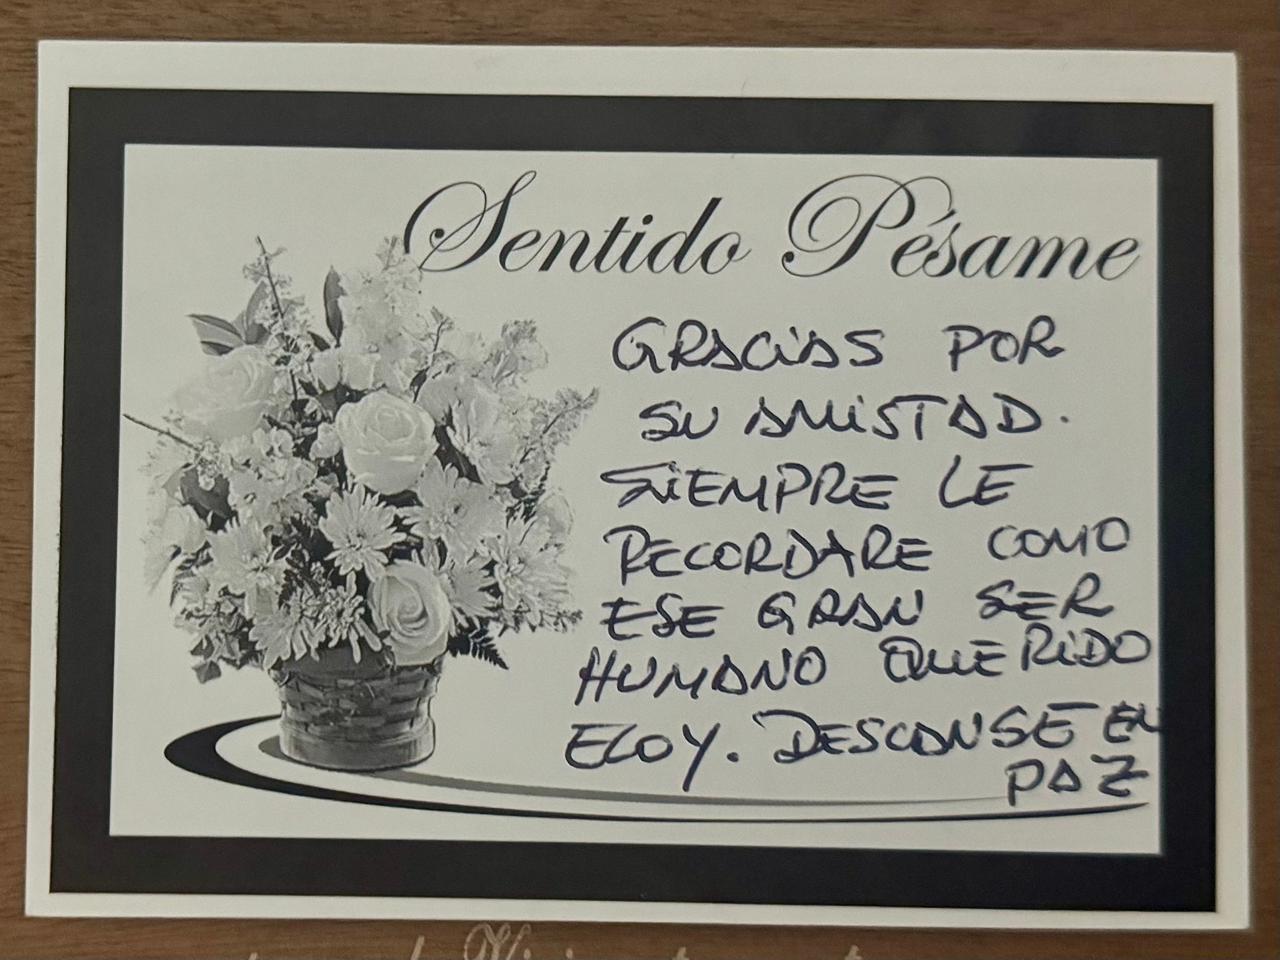 Sentido Pésame
GRACIAS POR
SU AMISTAD.
SIEMPRE LE
RECORDARE COMO
ESE GRAN SER
HUMANO QUERIDO
ELOY. DESCANSE EN
PAZ